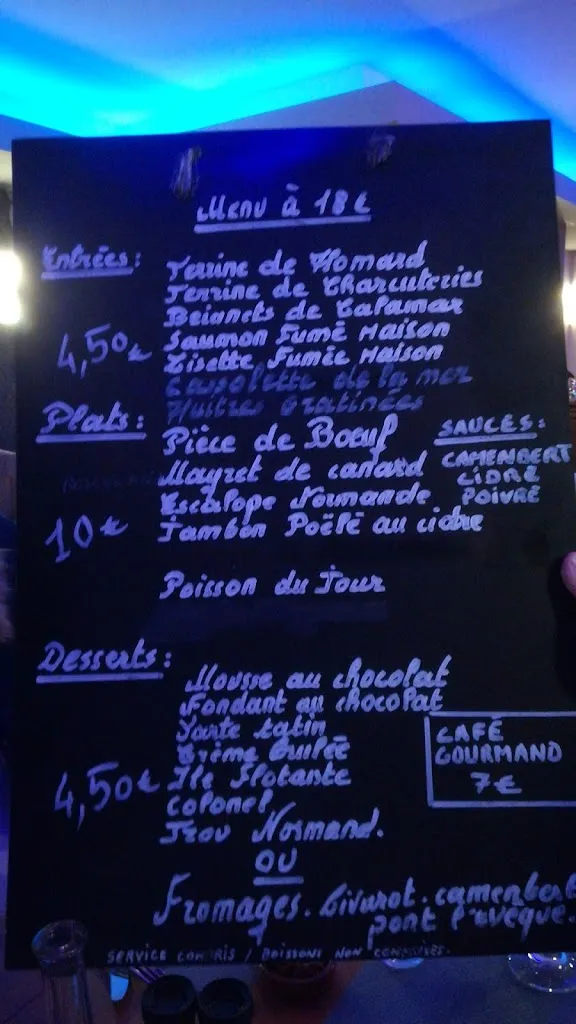 Menu à 18€
Entrées:
Terrine de Homard
Terrine de Charcuteries
Beignets de Calamar
4,50€
Saumon Fumé Maison
Lisette Fumée Maison
Cassolette de la mer
Huitres Gratinées
Plats:
Pièce de Bœuf
Magret de canard
Escalope Normande
Jambon Poêlé au cidre
10€
SAUCES:
CAMENBERT
CIDRE
POIVRE
Poisson du Jour
Desserts:
Mousse au chocolat
Fondant au chocolat
Tarte tatin
Crème Brulée
4,50€
Ile Flotante
Colonel
Trou Normand.
CAFÉ
GOURMAND
7€
OU
Fromages. Livarot. camenber
pont l'evèque.
SERVICE COMPRIS / BOISSONS NON COMPRISES.